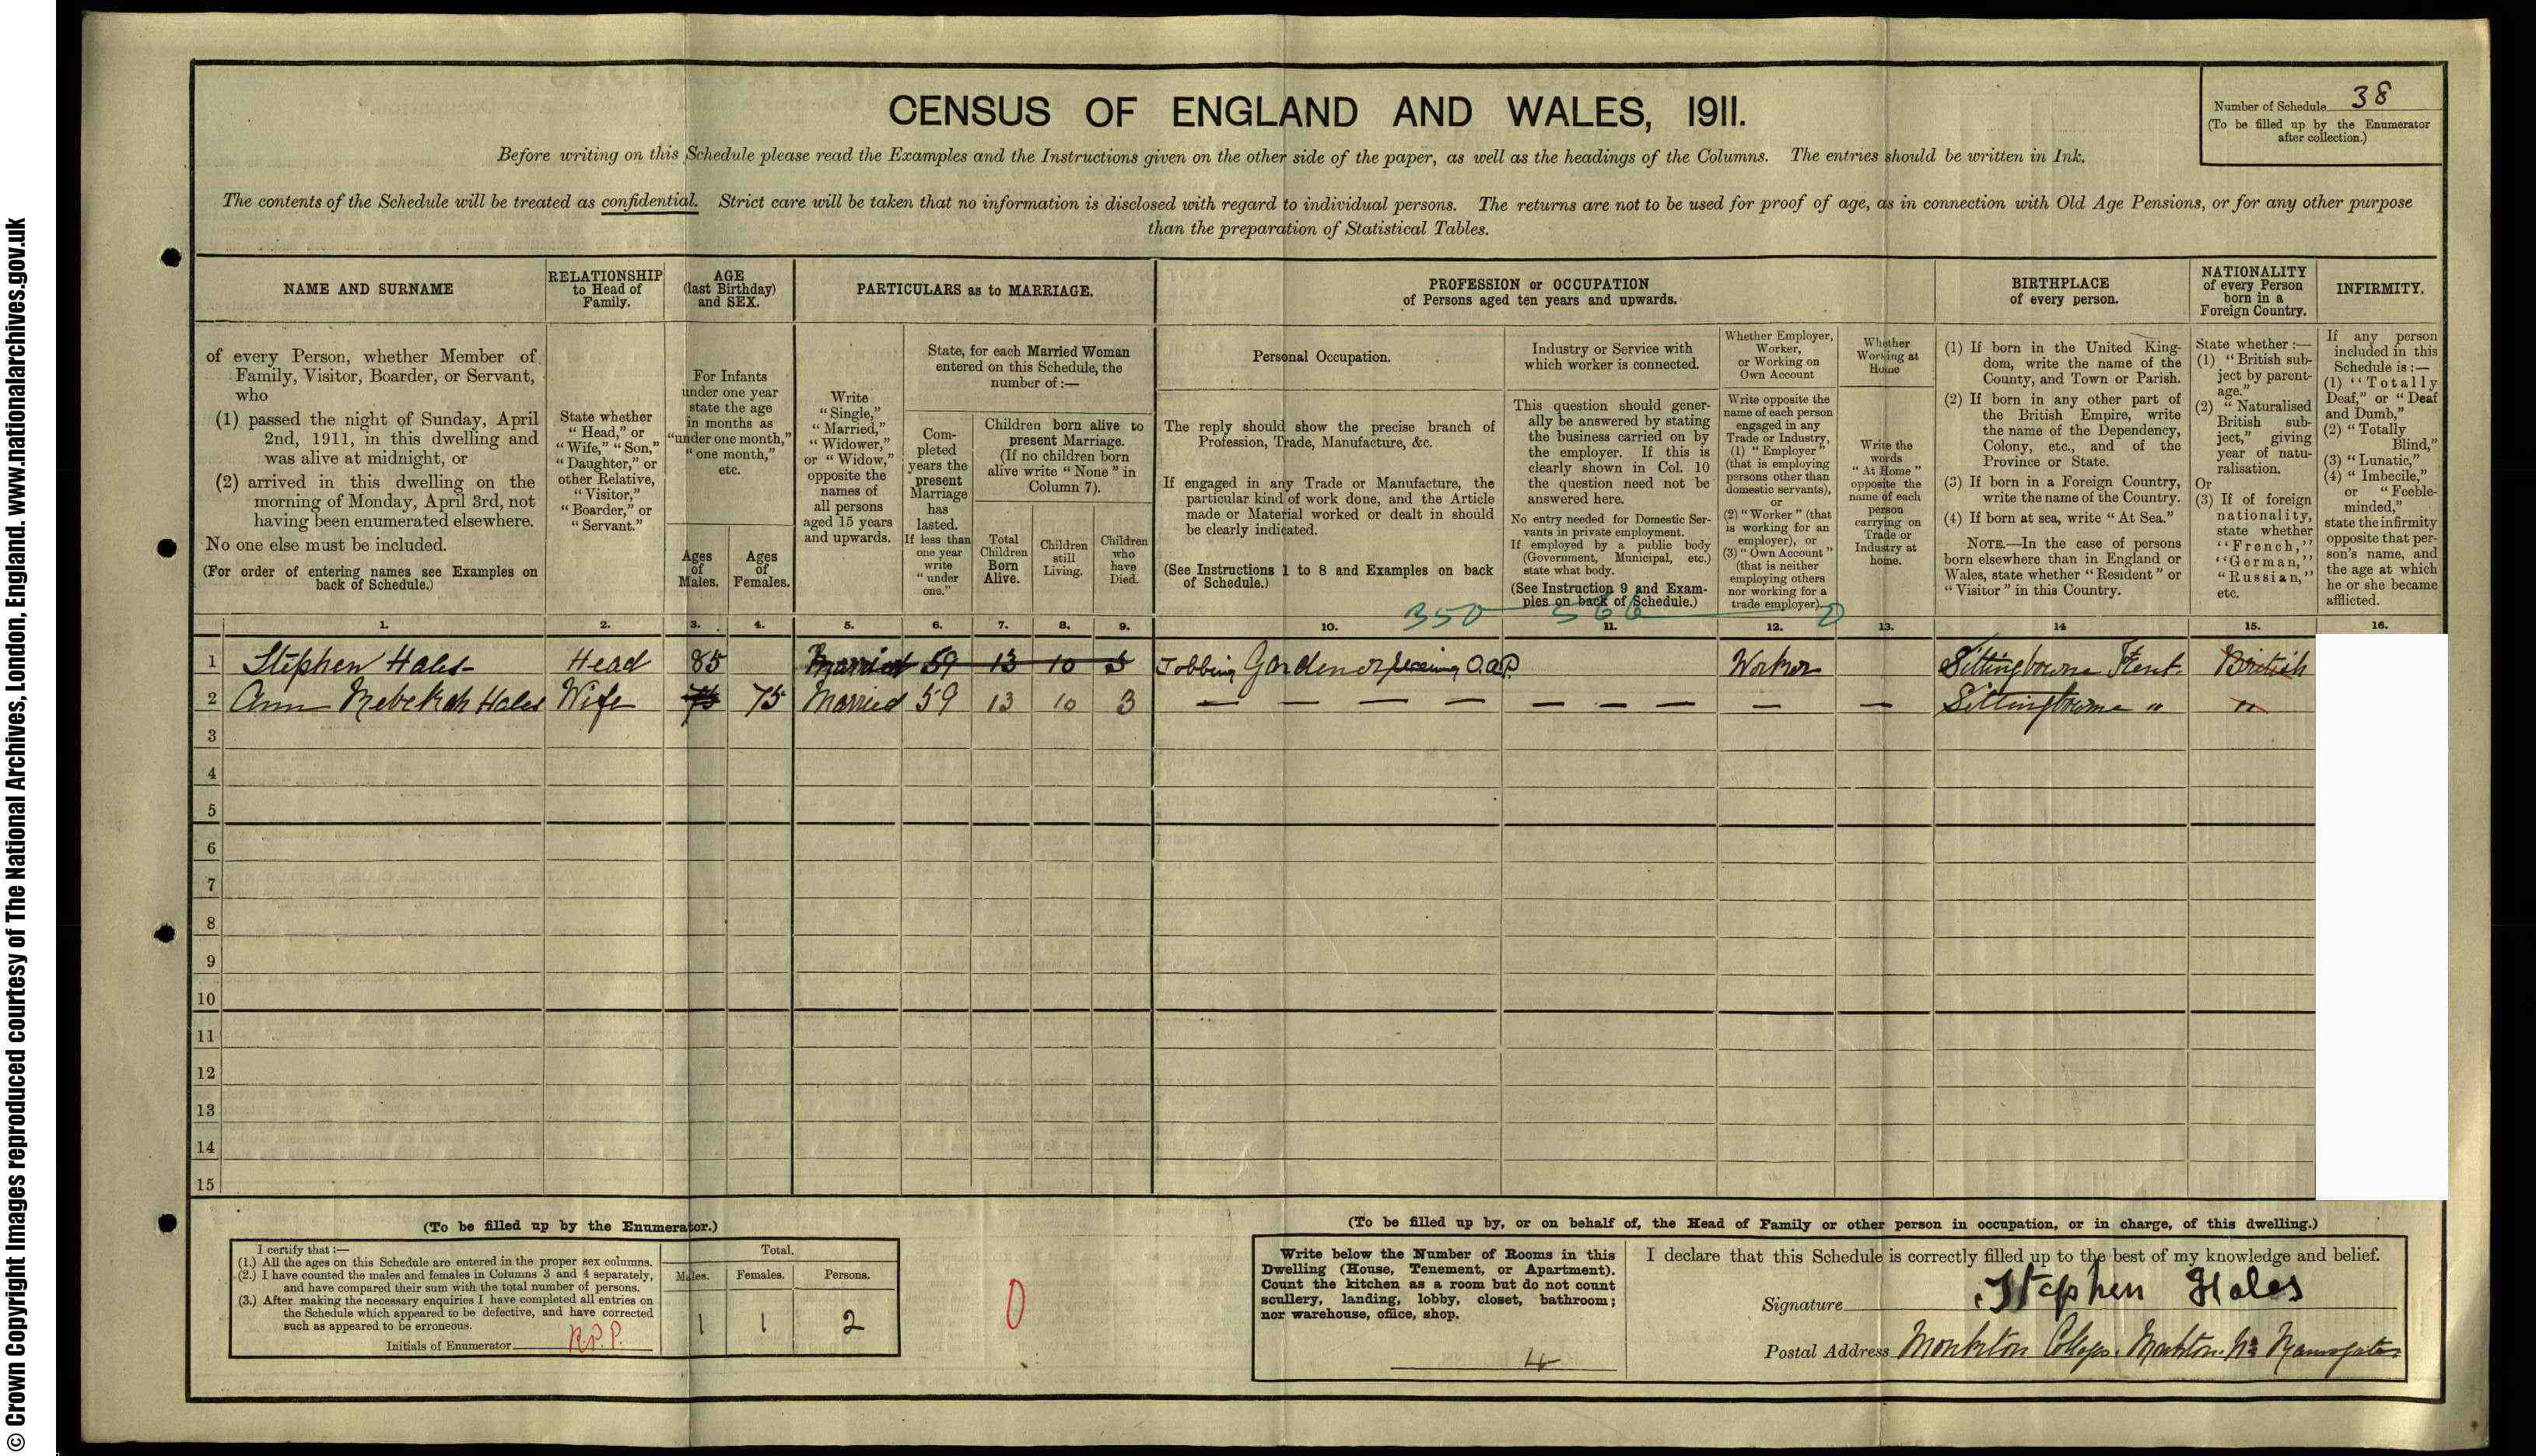 © Crown Copyright Images reproduced courtesy of The National Archives, London, England. www.nationalarchives.gov.uk
CENSUS OF ENGLAND AND WALES, 1911.
Number of Schedule 38
(To be filled up by the Enumerator
after collection.)
Before writing on this Schedule please read the Examples and the Instructions given on the other side of the paper, as well as the headings of the Columns. The entries should be written in Ink.
The contents of the Schedule will be treated as confidential. Strict care will be taken that no information is disclosed with regard to individual persons. The returns are not to be used for proof of age, as in connection with Old Age Pensions, or for any other purpose
than the preparation of Statistical Tables.
NAME AND SURNAME
of every Person, whether Member of
Family, Visitor, Boarder, or Servant,
who
(1) passed the night of Sunday, April
2nd, 1911, in this dwelling and
was alive at midnight, or
(2) arrived in this dwelling on the
morning of Monday, April 3rd, not
having been enumerated elsewhere.
No one else must be included.
(For order of entering names see Examples on
back of Schedule.)
RELATIONSHIP
to Head of
Family.
State whether
"Head," or
"Wife," "Son,"
"Daughter," or
other Relative,
"Visitor,"
"Boarder," or
"Servant."
AGE
(last Birthday)
and SEX.
For Infants
under one year
state the age
in months as
"under one month,"
"one month,"
etc.
Ages
of
Males.
Ages
of
Females.
PARTICULARS as to MARRIAGE.
Write
"Single,"
"Married,"
"Widower,"
or "Widow,"
opposite the
names of
all persons
aged 15 years
and upwards.
State, for each Married Woman
entered on this Schedule, the
number of :—
Com-
pleted
years the
present
Marriage
has
lasted.
If less than
one year
write
"under
one."
Children born alive to
present Marriage.
(If no children born
alive write "None" in
Column 7).
Total
Children
Born
Alive.
Children
still
Living.
Children
who
have
Died.
PROFESSION or OCCUPATION
of Persons aged ten years and upwards.
Personal Occupation.
The reply should show the precise branch of
Profession, Trade, Manufacture, &c.
If engaged in any Trade or Manufacture, the
particular kind of work done, and the Article
made or Material worked or dealt in should
be clearly indicated.
(See Instructions 1 to 8 and Examples on back
of Schedule.)
Industry or Service with
which worker is connected.
This question should gener-
ally be answered by stating
the business carried on by
the employer. If this is
clearly shown in Col. 10
the question need not be
answered here.
No entry needed for Domestic Ser-
vants in private employment.
If employed by a public body
(Government, Municipal, etc.)
state what body.
(See Instruction 9 and Exam-
ples on back of Schedule.)
Whether Employer,
Worker,
or Working on
Own Account
Write opposite the
name of each person
engaged in any
Trade or Industry,
(1) "Employer"
(that is employing
persons other than
domestic servants),
or
(2) "Worker" (that
is working for an
employer), or
(3) "Own Account"
(that is neither
employing others
nor working for a
trade employer).
Whether
Working at
Home
Write the
words
"At Home"
opposite the
name of each
person
carrying on
Trade or
Industry at
home.
BIRTHPLACE
of every person.
(1) If born in the United King-
dom, write the name of the
County, and Town or Parish.
(2) If born in any other part of
the British Empire, write
the name of the Dependency,
Colony, etc., and of the
Province or State.
(3) If born in a Foreign Country,
write the name of the Country.
(4) If born at sea, write "At Sea."
NOTE.—In the case of persons
born elsewhere than in England or
Wales, state whether "Resident" or
"Visitor" in this Country.
NATIONALITY
of every Person
born in a
Foreign Country.
State whether :—
(1) "British sub-
ject by parent-
age."
(2) "Naturalised
British sub-
ject," giving
year of natu-
ralisation.
Or
(3) If of foreign
nationality,
state whether
"French,"
"German,"
"Russian,"
etc.
INFIRMITY.
If any person
included in this
Schedule is :—
(1) "Totally
Deaf," or "Deaf
and Dumb,"
(2) "Totally
Blind,"
(3) "Lunatic,"
(4) "Imbecile,"
or "Feeble-
minded,"
state the infirmity
opposite that per-
son's name, and
the age at which
he or she became
afflicted.
350 566 0
1. 2. 3. 4. 5. 6. 7. 8. 9. 10. 11. 12. 13. 14 15. 16.
1 Stephen Hales Head 85 Married 59 13 10 3 Jobbing Gardener O.A.P. Worker Sittingbourne Kent British
2 Ann Rebekah Hales Wife 75 75 Married 59 13 10 3 — — — — — — — — — Sittingbourne " "
3
4
5
6
7
8
9
10
11
12
13
14
15
(To be filled up by the Enumerator.)
I certify that :—
(1.) All the ages on this Schedule are entered in the proper sex columns.
(2.) I have counted the males and females in Columns 3 and 4 separately,
and have compared their sum with the total number of persons.
(3.) After making the necessary enquiries I have completed all entries on
the Schedule which appeared to be defective, and have corrected
such as appeared to be erroneous.
Initials of Enumerator R.P.P.
Total.
Males. Females. Persons.
1 1 2
0
(To be filled up by, or on behalf of, the Head of Family or other person in occupation, or in charge, of this dwelling.)
Write below the Number of Rooms in this
Dwelling (House, Tenement, or Apartment).
Count the kitchen as a room but do not count
scullery, landing, lobby, closet, bathroom;
nor warehouse, office, shop.
4
I declare that this Schedule is correctly filled up to the best of my knowledge and belief.
Signature Stephen Hales
Postal Address Monkton Monkton Nr Ramsgate